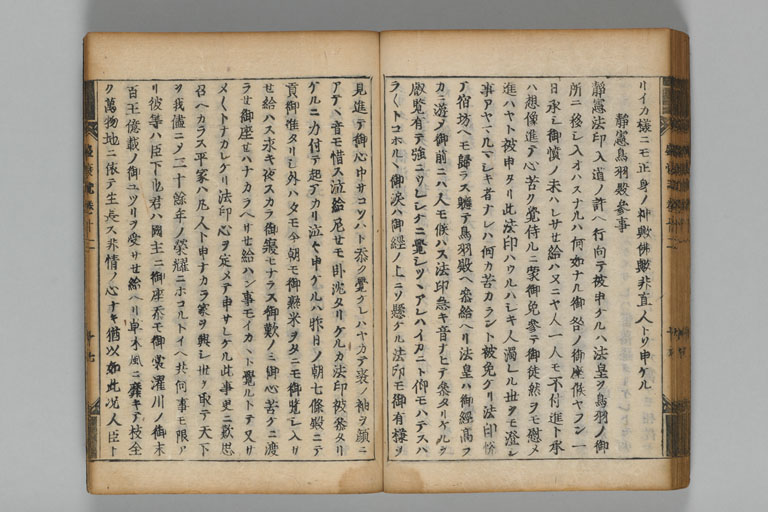 リイカ様ニモ正身ノ神歟佛歟非直人トソ申ケル
静憲鳥羽殿參事
静憲法印入道ノ許ヘ行向テ被申ケルハ法皇ヲ鳥羽ノ御
所ニ移シ入オハスナルハ何如ナル御咎ノ御座候ヤラン一
日承シ御憤ノ未ハレサセ給ハヌニヤ人一人モ不付進ト承
ハ想像進テ心苦ク覺侍ルニ蒙御免參テ御徒然ヲモ慰メ
進ハヤト被申タリ此法印ハウルハシキ人濁レル世ヲモ澄シ
事アヤマルマシキ者ナレハ何カ苦カラント被免ケリ法印悦
ア宿坊ヘモ歸ラス軈テ鳥羽殿ヘ參給ヘリ法皇ハ御經高ラ
カニ遊メ御前ニハ人モ候ハス法印急キ音ナヒテ參タリケルヲ
叡覽有テ強ニウレシケニ覺シツヽアレハイカニト仰モハテスハ
ラ〱トコホルヽ御涙ハ御經ノ上ニソ懸ケル法印モ御有様ヲ
見進テ御心中サコソハト忝ク覺ケレハヤカテ裳ノ袖ヲ顔ニ
アテヽ音モ惜ス泣給尼セモ臥沈タリケルカ法印被參タリ
ケルニ力付テ起アカリ泣々申ケルハ昨日ノ朝七條殿ニテ
貢御進タリシ外ハタモ今朝モ御熊米ヲタニモ御覽シ入サ
セ給ハス永キ夜スカラ御寝モナラス御歎ノミ御心苦ケニ渡
ラセ御座セハナカラヘサセ給ハン事モイカヽト覺ルトテ又サ
メ〱トナカレケリ法印心ヲ定メテ申サレケル此事更ニ歎思
召ヘカラス平家ハ凡人ト申ナカラ家ヲ興シ世ヲ取テ天下
ヲ我儘ニメ二十餘年ノ榮耀ニホコルトイヘ共何事モ限ア
リ彼等ハ臣下也君ハ國主ニ御座忝モ御裳濯川ノ御末
百王億載ノ御ユツリヲ受サセ給ヘリ草木風ニ靡キテ枝全
ク萬物地ニ依テ生長ス非情ノ心ナキ猶以如此况人臣ト